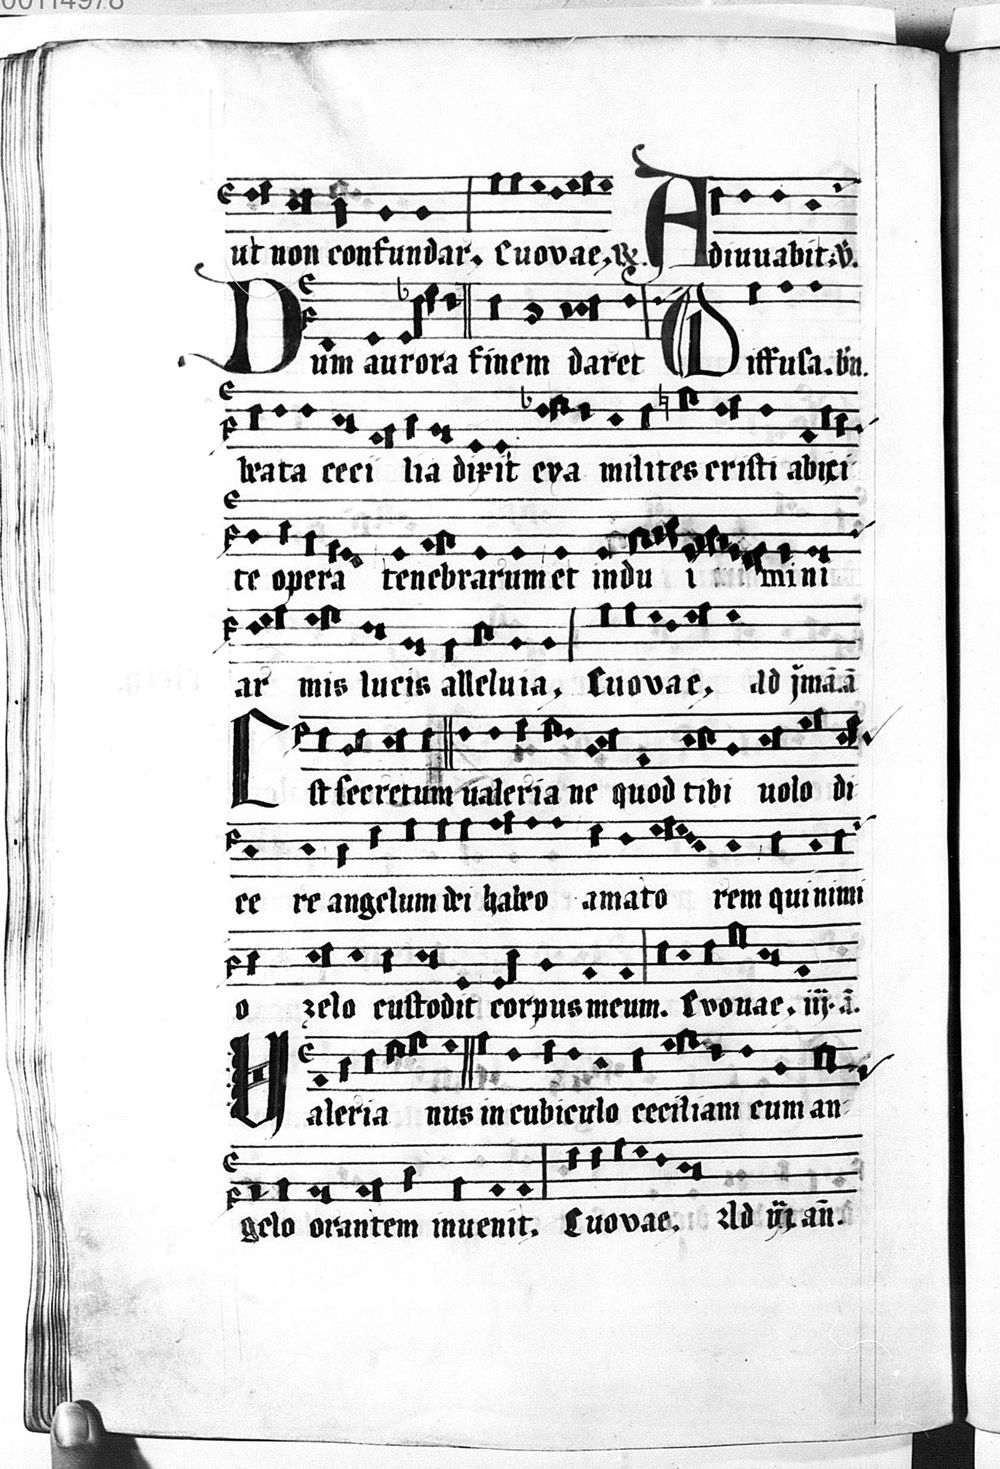 00114978
ut non confundar. Euovae. R. Adiuuabit. V.
Dum aurora finem daret Diffusa. bn.
beata ceci lia dixit eya milites cristi abici
te opera tenebrarum et indu i mini
ar mis lucis alleluia, Euovae, ad
Est secretum ualeria ne quod tibi uolo di
ce re angelum dei habeo amato rem qui nimi
o zelo custodit corpus meum. Evouae. iij. a.
Valeria nus in cubiculo ceciliam cum an
gelo orantem inuenit. Euovae. Ad an.